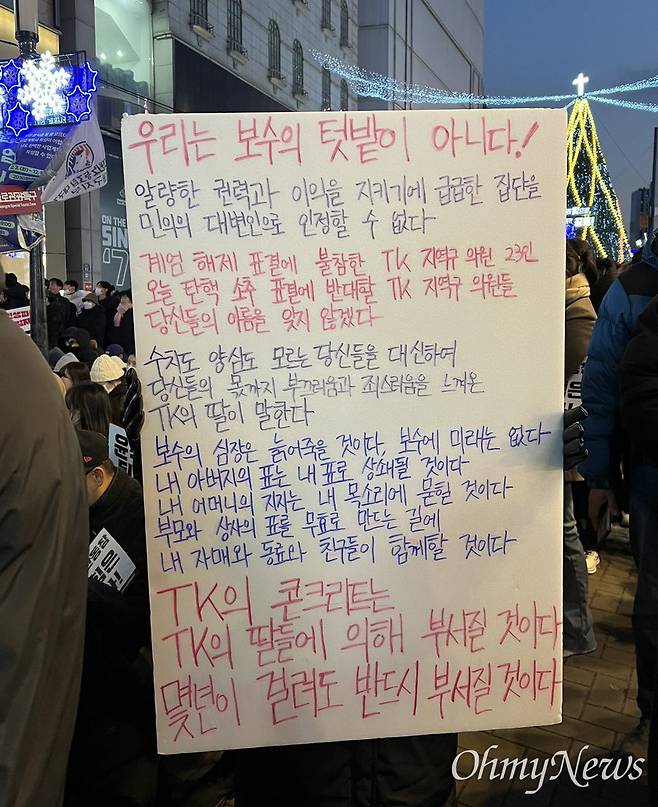 우리는 보수의 텃밭이 아니다!
알량한 권력과 이익을 지키기에 급급한 집단을
민의의 대변인으로 인정할 수 없다
계엄 해제 표결에 불참한 TK 지역구 의원 23인
오늘 탄핵 소추 표결에 반대할 TK 지역구 의원들
당신들의 이름을 잊지 않겠다
수치도 양심도 모르는 당신들을 대신하여
당신들의 몫까지 부끄러움과 죄스러움을 느껴온
TK의 딸이 말한다
보수의 심장은 늙어죽을 것이다, 보수에 미래는 없다
내 아버지의 표는 내 표로 상쇄될 것이다
내 어머니의 지지는 내 목소리에 묻힐 것이다
부모와 상사의 표를 무효로 만드는 길에
내 자매와 동료와 친구들이 함께할 것이다
TK의 콘크리트는
TK의 딸들에 의해 부서질 것이다
몇년이 걸려도 반드시 부서질 것이다
ON THE
SIN
'7
OhmyNews